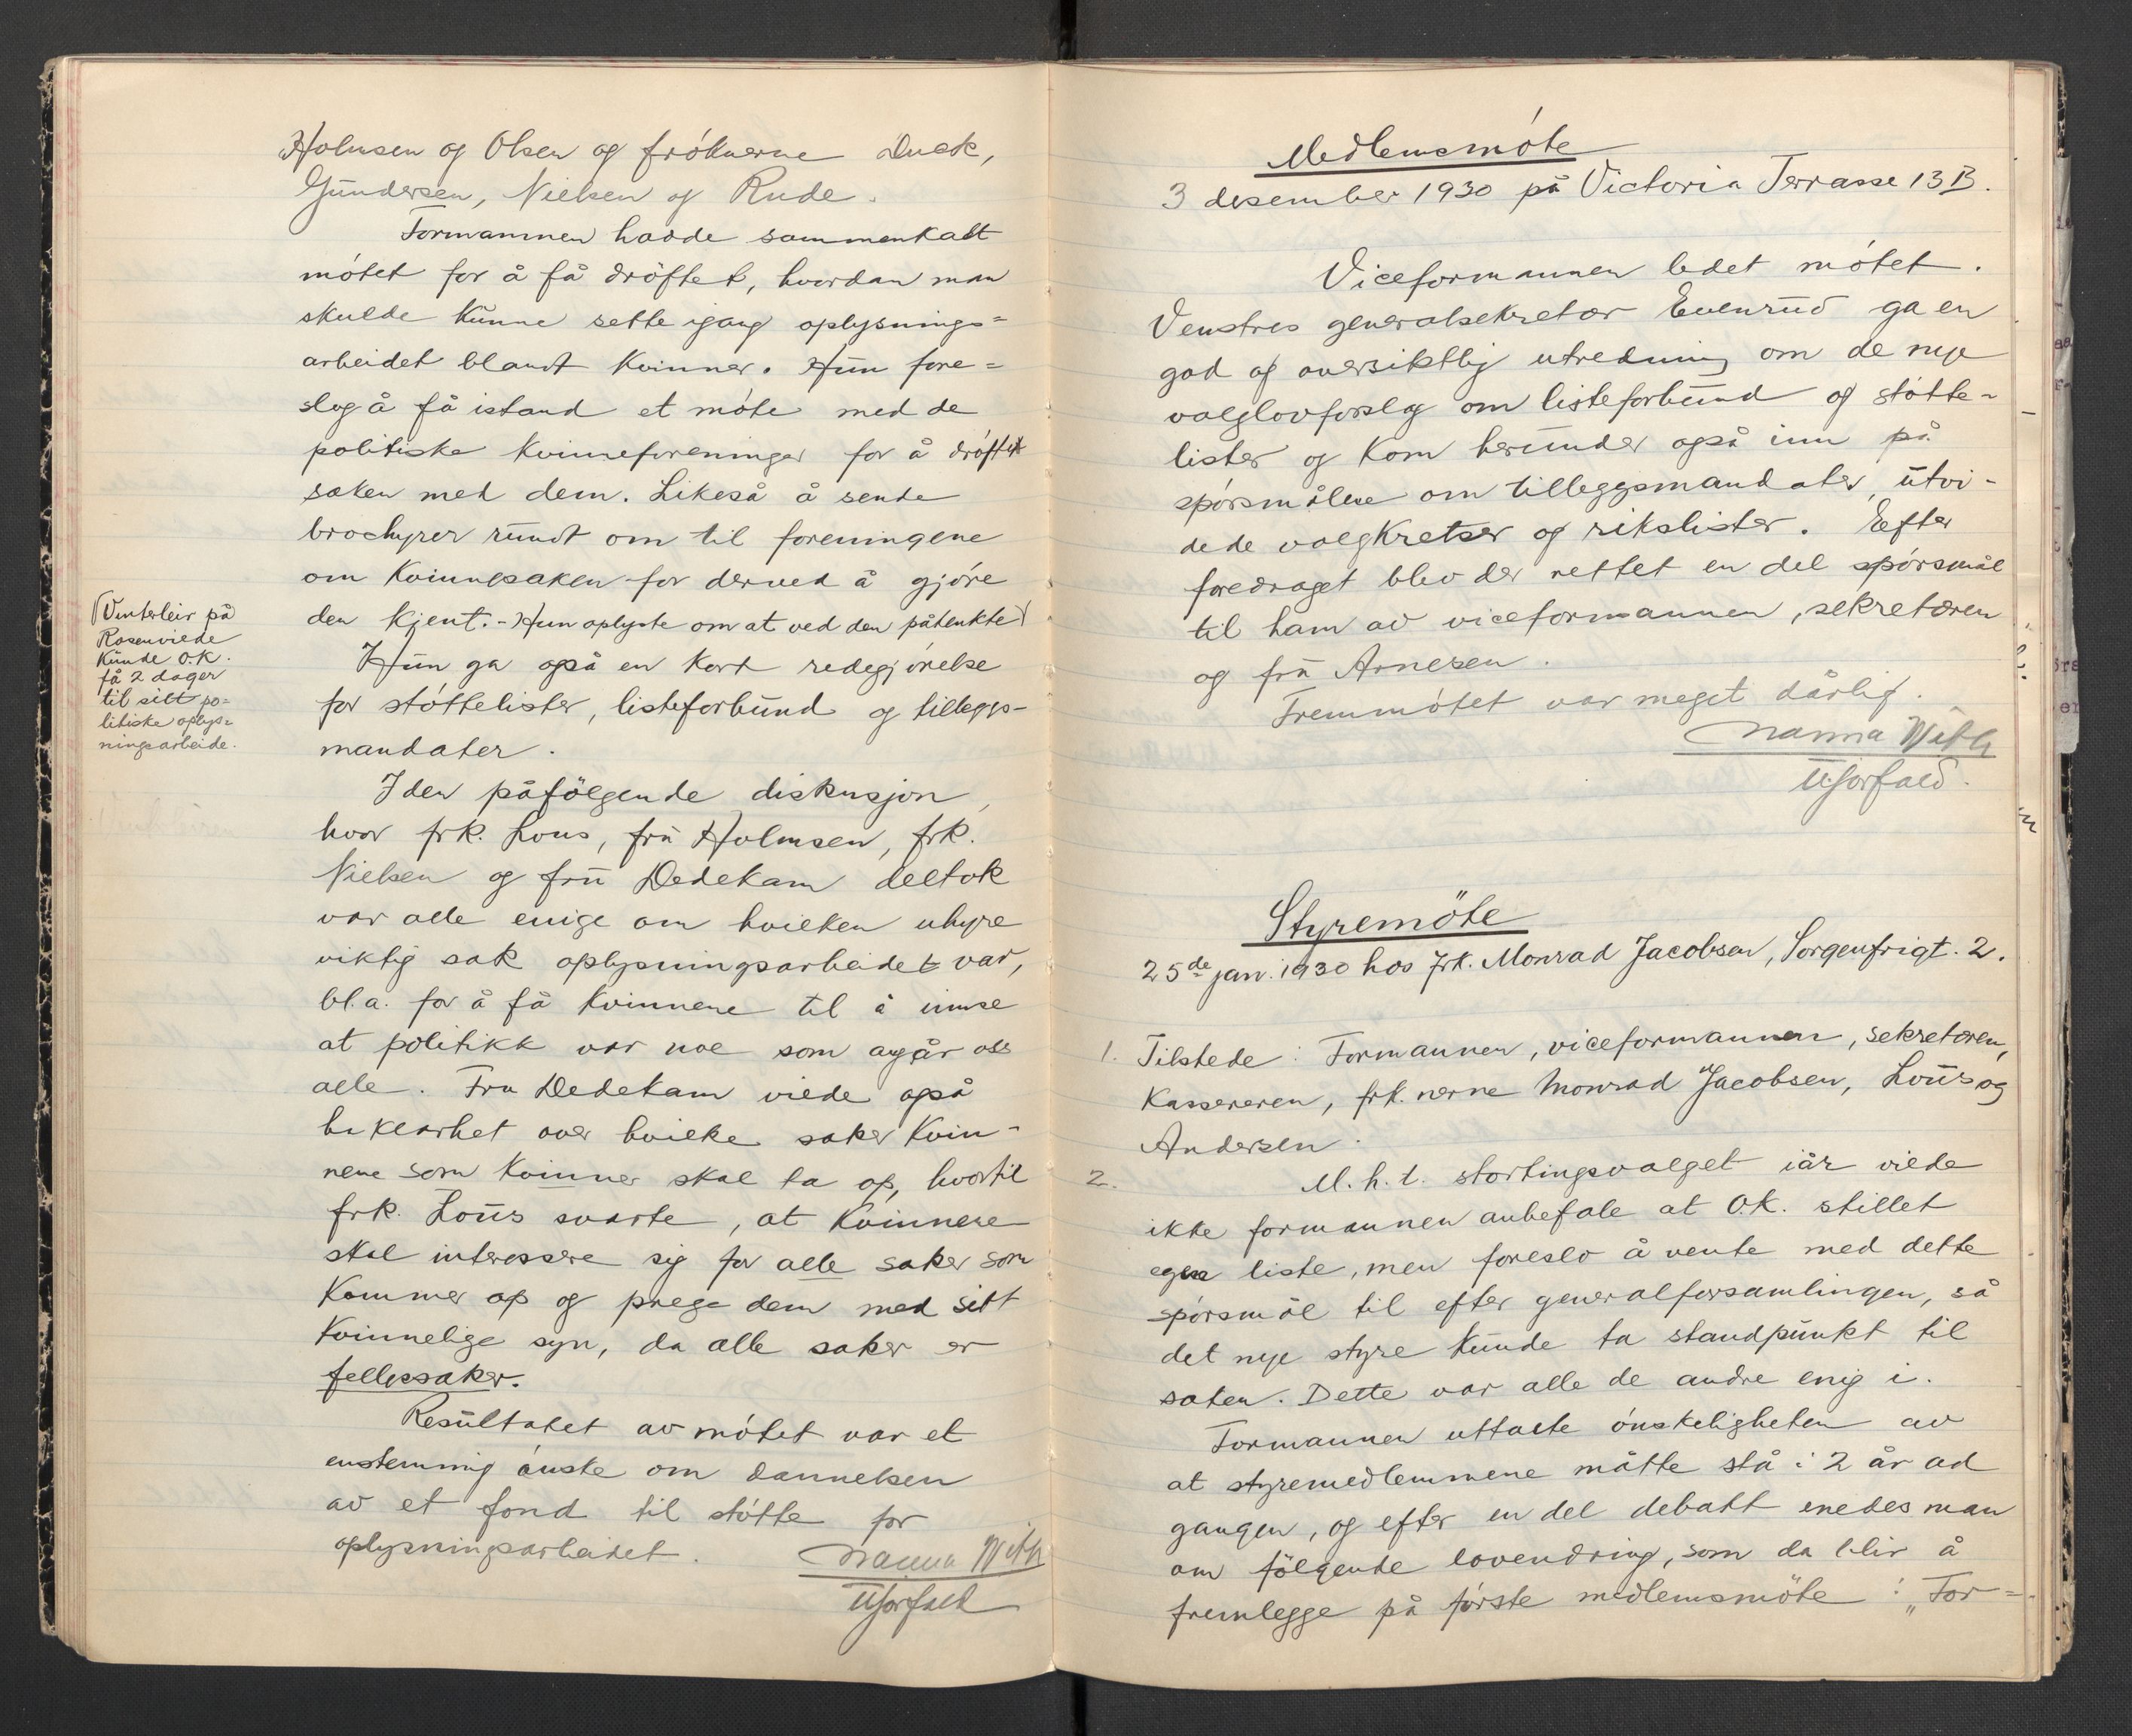 Holmsen og Olsen og fröknerne Duek,
Gundersen, Nielsen og Rude.
Formannen hadde sammenkalt
mötet for å få dröftet, hvordan man
skulde kunne sette igang oplysnings=
arbeidet blandt kvinner. Hun fore=
slog å få istand et möte med de
politiske kvinneforeninger for å dröftet
saken med dem. Likeså å sende
brochyrer rundt om til foreningene
om kvinnesaken for derved å gjöre
den kjent. - Hun oplyste om at ved den påtenkte
(Vinterleir på
Rosenvilde
kunde O.K.
få 2 dager
til sitt po-
litiske oplys-
ningsarbeide.
Hun ga også en kort redegjörelse
for stöttelister, listeforbund og tilleggs-
mandater.
I den påfölgende diskusjon,
hvor frk. Lous, fru Holmsen, frk.
Nielsen og fru Dedekam deltok
var alle enige om hvilken uhyre
viktig sak oplysningsarbeidet var,
bl.a. for å få kvinnene til å innse
at politikk var noe som angår oss
alle. Fru Dedekam vilde også
ha klarhet over hvilke saker kvin-
nene som kvinner skal ta op, hvortil
frk. Lous svarte, at kvinnene
skal interessere sig for alle saker som
kommer op og prege dem med sitt
kvinnelige syn, da alle saker er
fellessaker.
Resultatet av mötet var et
enstemmig önske om dannelsen
av et fond til stötte for
oplysningsarbeidet.
Nanna With
Medlemsmöte
3 desember 1930 på Victoria Terrasse 13B.
Viceformannen ledet mötet.
Venstres generalsekretær Evenrud ga en
god og oversiktlig utredning om de nye
valglovforslag om listeforbund og stötte-
lister og kom herunder også inn på
spörsmålene om tilleggsmandater, utvi-
dede valgkretser og rikslister. Efter
foredraget blev der rettet en del spörsmål
til ham av viceformannen, sekretæren
og fru Arnesen.
Fremmötet var meget dårlig.
Nanna With
Styremöte
25de jan. 1930 hos frk. Monrad Jacobsen, Sorgenfrigt. 2.
1. Tilstede: Formannen, viceformannen, sekretæren,
kassereren, frk.nerne Monrad Jacobsen, Lous og
Andersen.
2. M.h.t. stortingsvalget iår vilde
ikke formannen anbefale at O.K. stillet
egne liste, men foreslo å vente med dette
spörsmål til efter generalforsamlingen, så
det nye styre kunde ta standpunkt til
saken. Dette var alle de andre enig i.
Formannen uttalte önskeligheten av
at styremedlemmene måtte stå i 2 år ad
gangen, og efter en del debatt enedes man
om fölgende lovendring, som da blir å
fremlegge på förste medlemsmöte: „For=